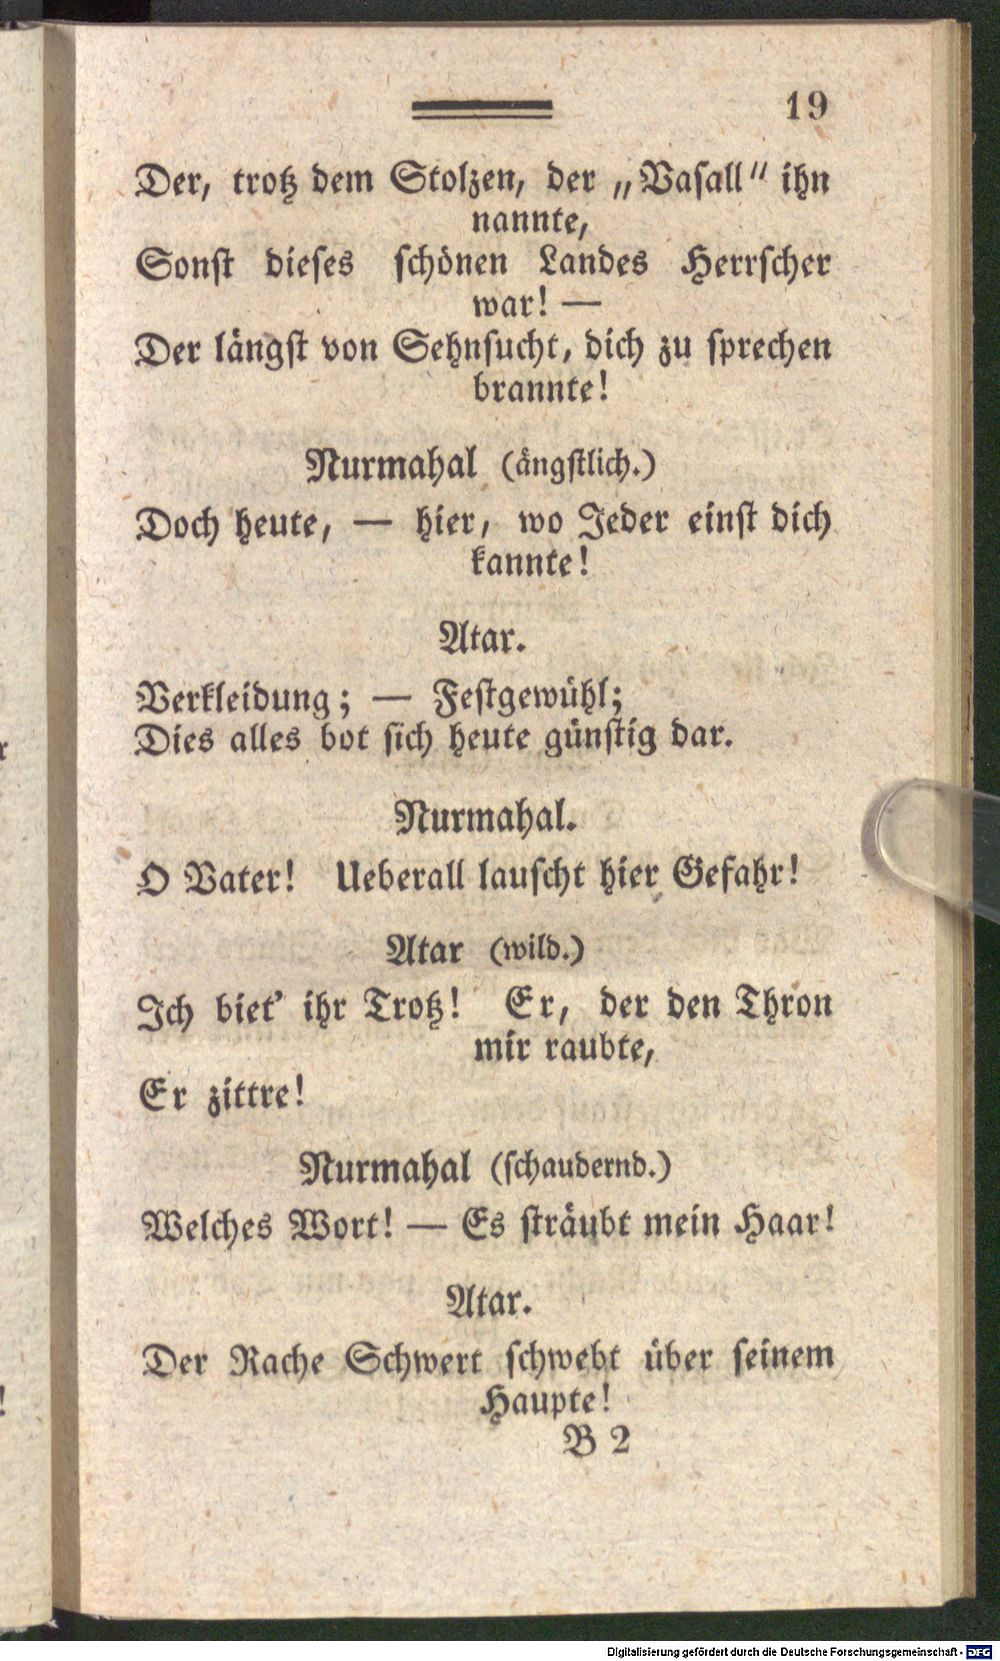 19
Der, trotz dem Stolzen, der „Vasall“ ihn
nannte,
Sonst dieses schönen Landes Herrscher
war! —
Der längst von Sehnsucht, dich zu sprechen
brannte!
Nurmahal (ängstlich.)
Doch heute, — hier, wo Jeder einst dich
kannte!
Atar.
Verkleidung; — Festgewühl;
Dies alles bot sich heute günstig dar.
Nurmahal.
O Vater! Ueberall lauscht hier Gefahr!
Atar (wild.)
Ich biet' ihr Trotz! Er, der den Thron
mir raubte,
Er zittre!
Nurmahal (schaudernd.)
Welches Wort! — Es sträubt mein Haar!
Atar.
Der Rache Schwert schwebt über seinem
Haupte!
B 2
Digitalisierung gefördert durch die Deutsche Forschungsgemeinschaft - DFG